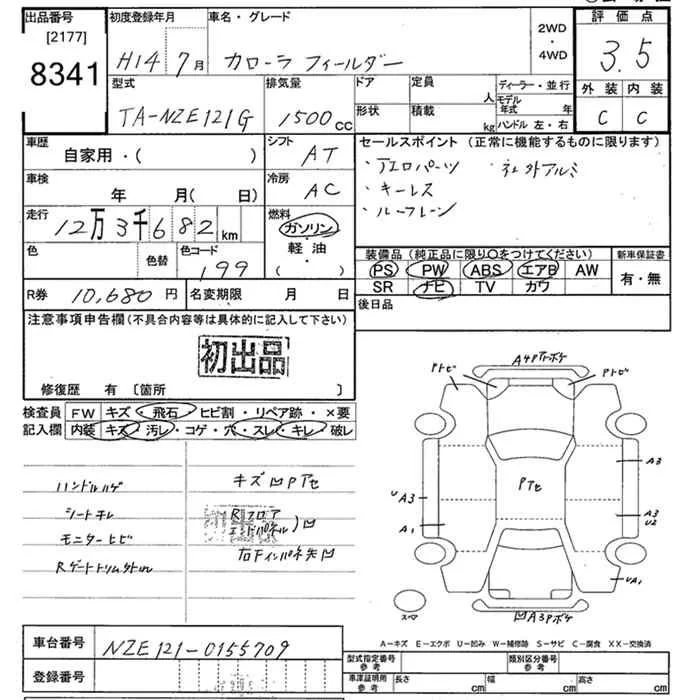 出品番号 初度登録年月 車名・グレード 評価点
[2177]
8341
H14 7月 カローラ フィールダー 2WD・4WD 3.5
型式 排気量 ドア 定員 人 ディーラー・並行 外装 内装
TA-NZE121G 1500cc 形状 積載 kg モデル年式 年 C C
ハンドル 左・右
車歴 自家用・( ) シフト AT セールスポイント (正常に機能するものに限ります)
・アエロパーツ ・社外アルミ
車検 年 月( 日) 冷房 AC ・キーレス
・ルーフレーン
走行 12万3千682km 燃料 ガソリン
軽・油
( )
色 色替 色コード 199
装備品 (純正品に限り○をつけてください) 新車保証書
PS PW ABS エアB AW 有・無
SR ナビ TV カワ
R券 10,680円 名変期限 月 日 後日品
注意事項申告欄(不具合内容等は具体的に記入して下さい)
初出品
修復歴 有 〔箇所 〕
検査員 FW キズ・飛石・ヒビ割・リペア跡・×要
記入欄 内装 キズ・汚レ・コゲ・穴・スレ・キレ・破レ
ハンドルハゲ キズ凹Pアセ
シートキレ Rフロア
エンドパネル)凹
モニターヒビ 右下インパネ矢凹
Rゲートトリム
Pトビ A4Pトボケ Pトビ
Pアセ
A3
UA3
A3
U2
A1
UA1
スペ
凹A3Pボケ
A－キズ E－エクボ U－凹み W－補修跡 S－サビ C－腐食 XX－交換済
車台番号 NZE121-0155709
登録番号
型式指定番号 参考 類別区分番号 参考
車庫証明用 参考 長さ cm 幅 cm 高さ cm